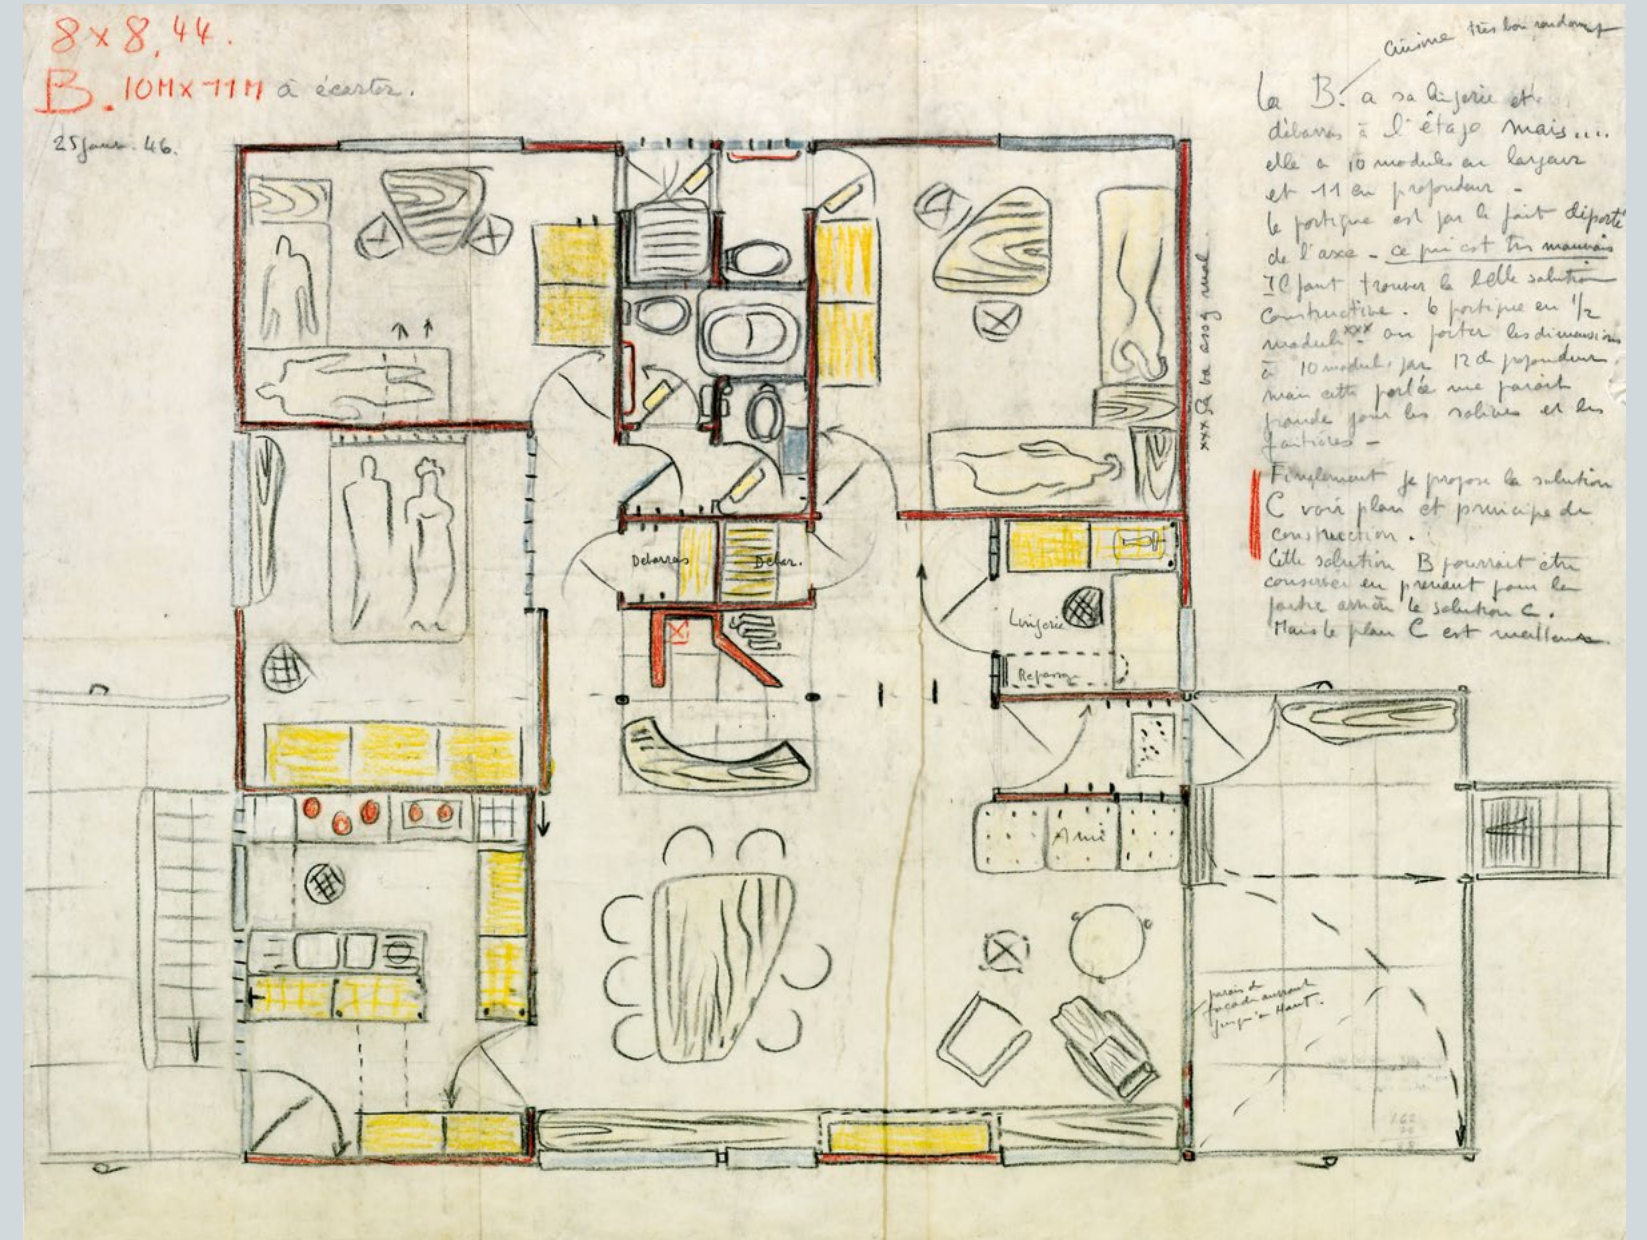 8 x 8,44.
B. 10M x 11M à écarter.
25 janv. 46.
Cuisine très bon
La B. a sa lingerie et
débarras à l'étage mais....
elle a 10 modules en largeur
et 11 en profondeur -
le portique est par le fait déporté
de l'axe - ce qui est très mauvais
Il faut trouver la belle solution
constructive. le portique en 1/2
module xxx ou porter les dimensions
à 10 modules par 12 de profondeur
mais cette portée me paraît
grande pour les solives et les
faitières -
Finalement je propose la solution
C voir plan et principe de
construction.
Cette solution B pourrait être
conservée en prenant pour la
partie arrière la solution C.
Mais le plan C est meilleur
xxx ça va assez mal
Débarras
Débar.
Lingerie
Repassage
Amé
parois de
façade
jusqu'en Haut.